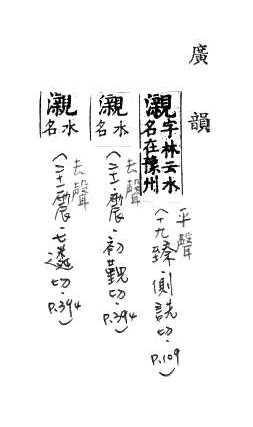 廣韻
瀙字林云水名在豫州
平聲
(十九臻.側詵切.P.109)
瀙水名
去聲
(二十一震.初覲切.P.394)
瀙水名
去聲
(二十一震.七遴切.P.394)